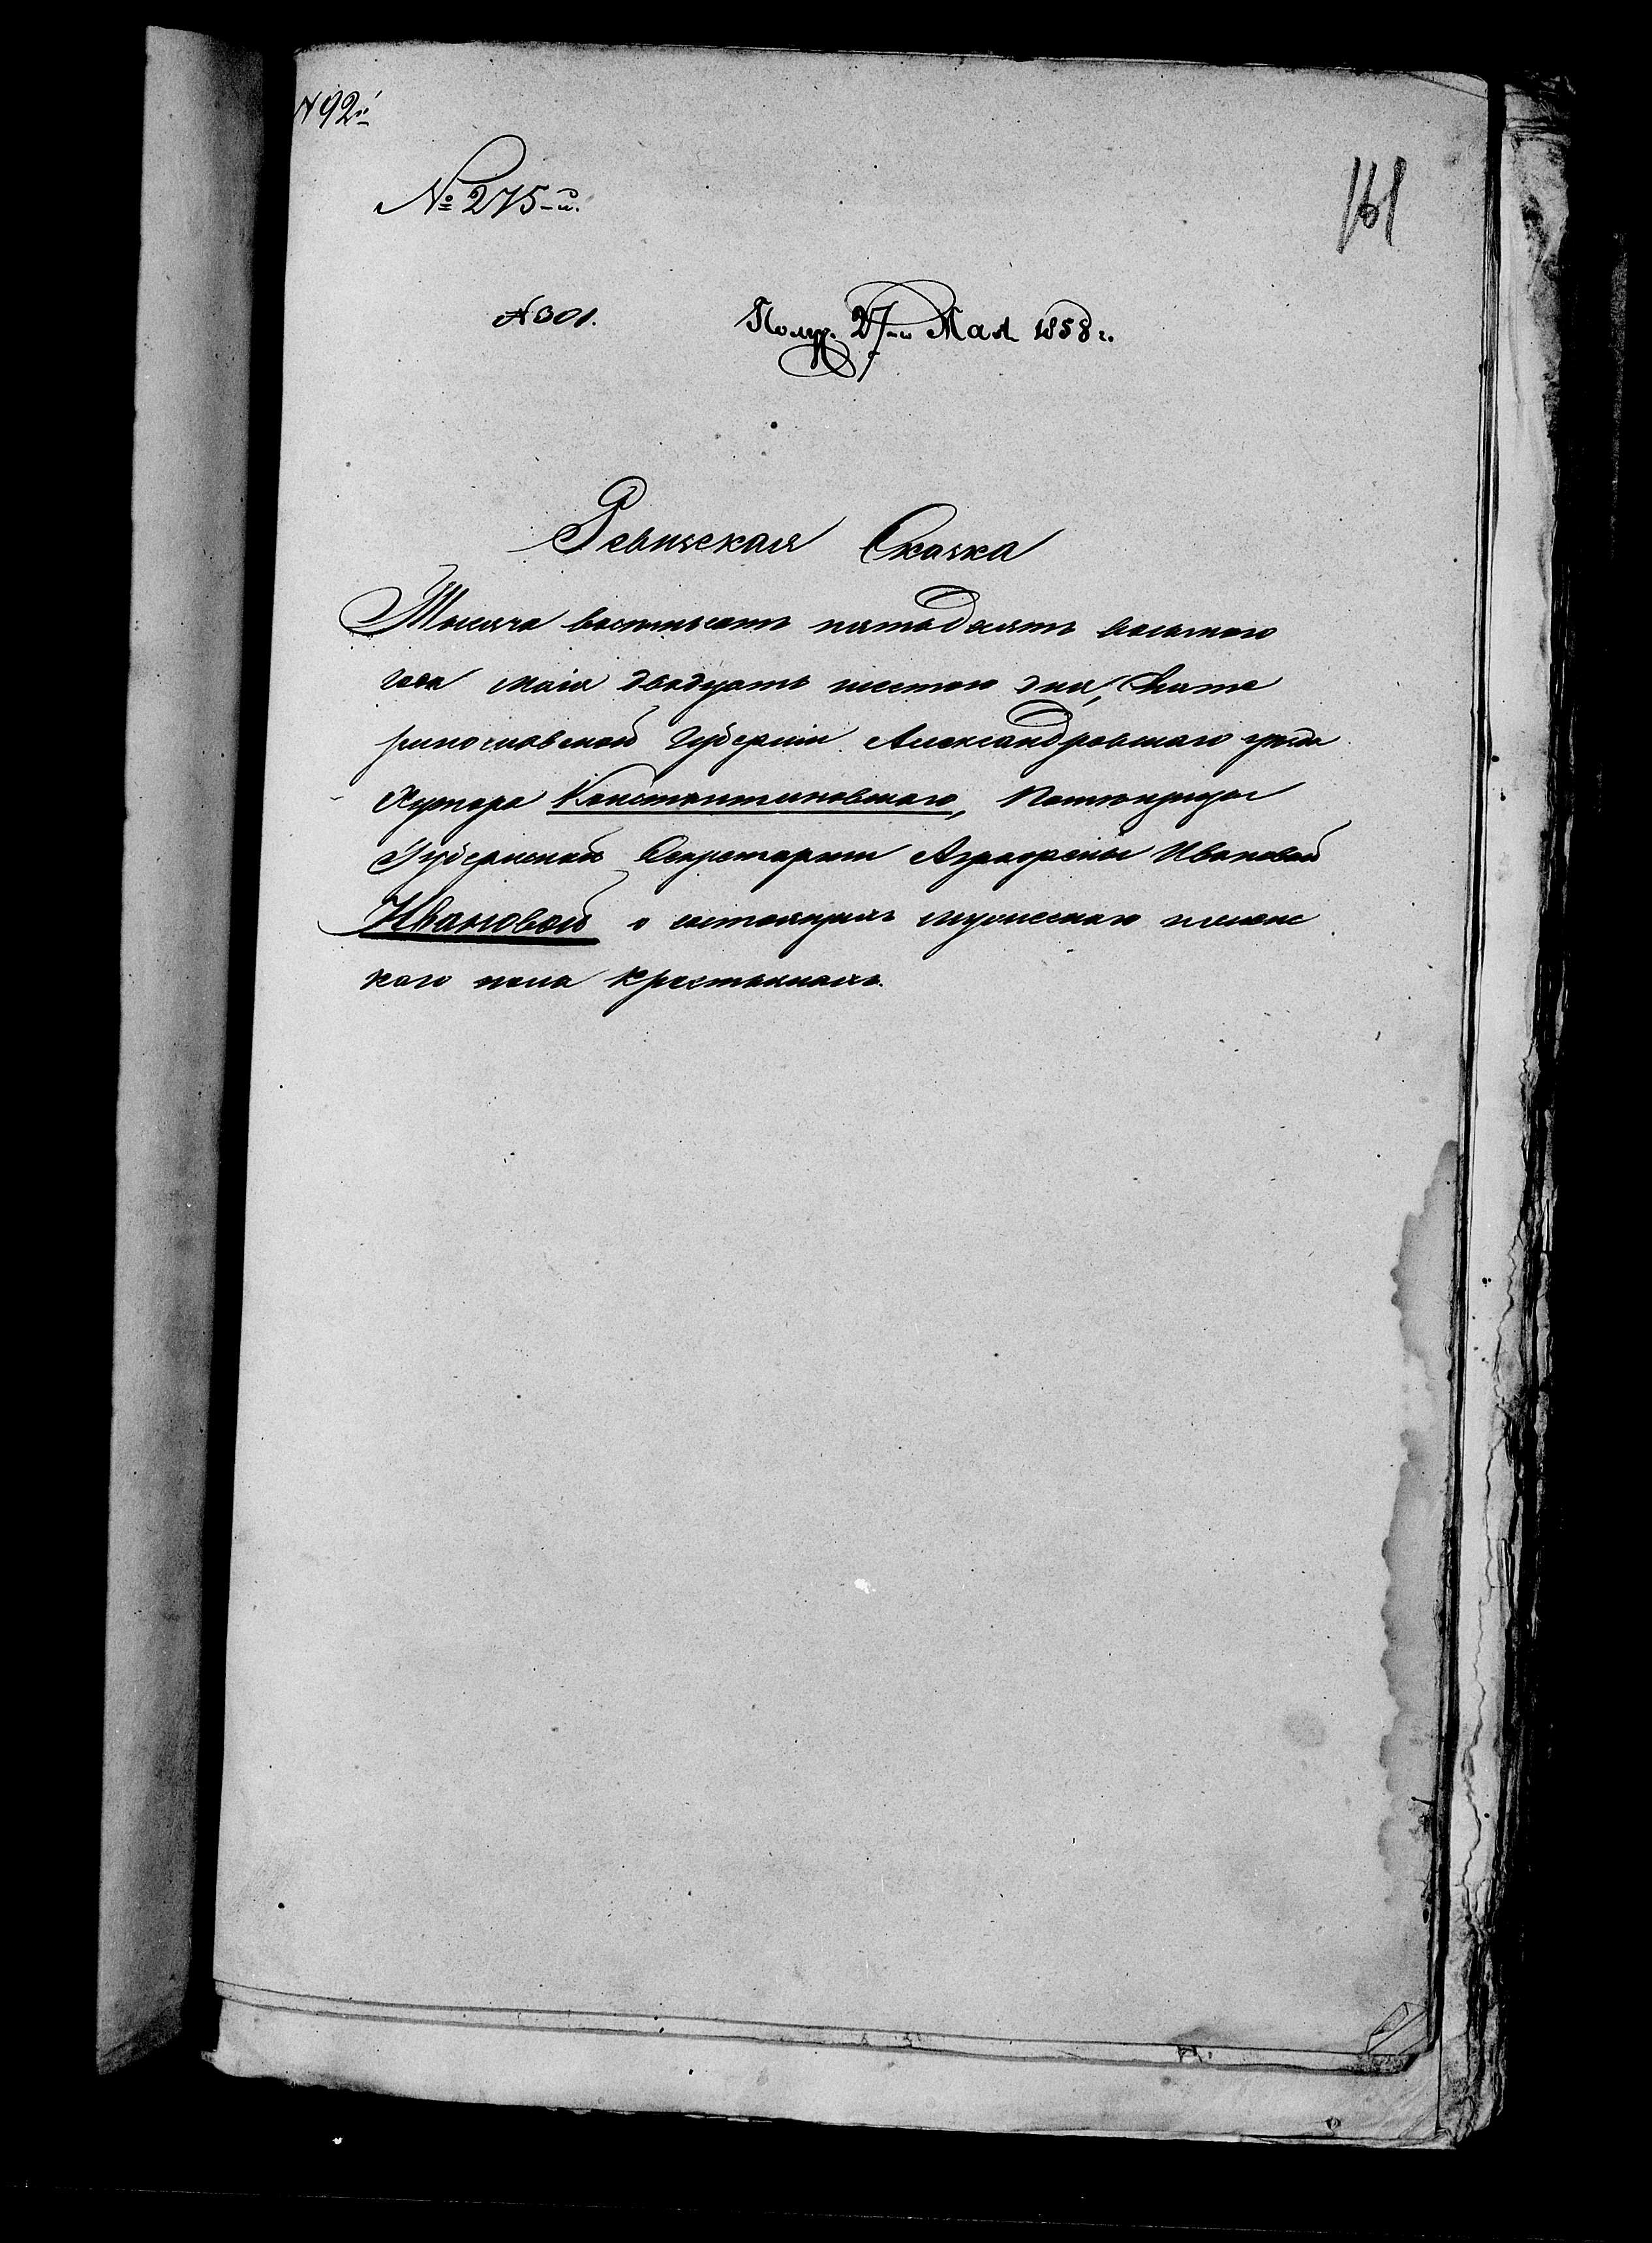 N 92й
№ 275-й.
161
N 301.
Получ. 27-го Мая 1858 г.
Ревизская Сказка
Тысяча восемьсотъ пятьдесятъ восьмого
года маія двадцать шестого дня, Екате
ринославской Губерніи Александровскаго уѣзда
Хутора Константиновскаго, Помѣщицы
Губернской Секретарши Агрофены Ивановой
Ивановой о состоящихъ мужескаго и женс
каго пола крестьянахъ.